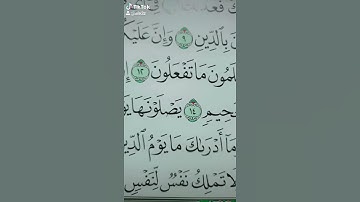 TikTok
ك فعدلك
بِٱلدِّينِ ٩ وَإِنَّ عَلَيْكُ
مُونَ مَا تَفْعَلُونَ ١٢ إِ
حِيمٍ ١٤ يَصْلَوْنَهَا يَوْ
مَآ أَدْرَىٰكَ مَا يَوْمُ ٱلدِّي
لَا تَمْلِكُ نَفْسٌ لِّنَفْسٍ